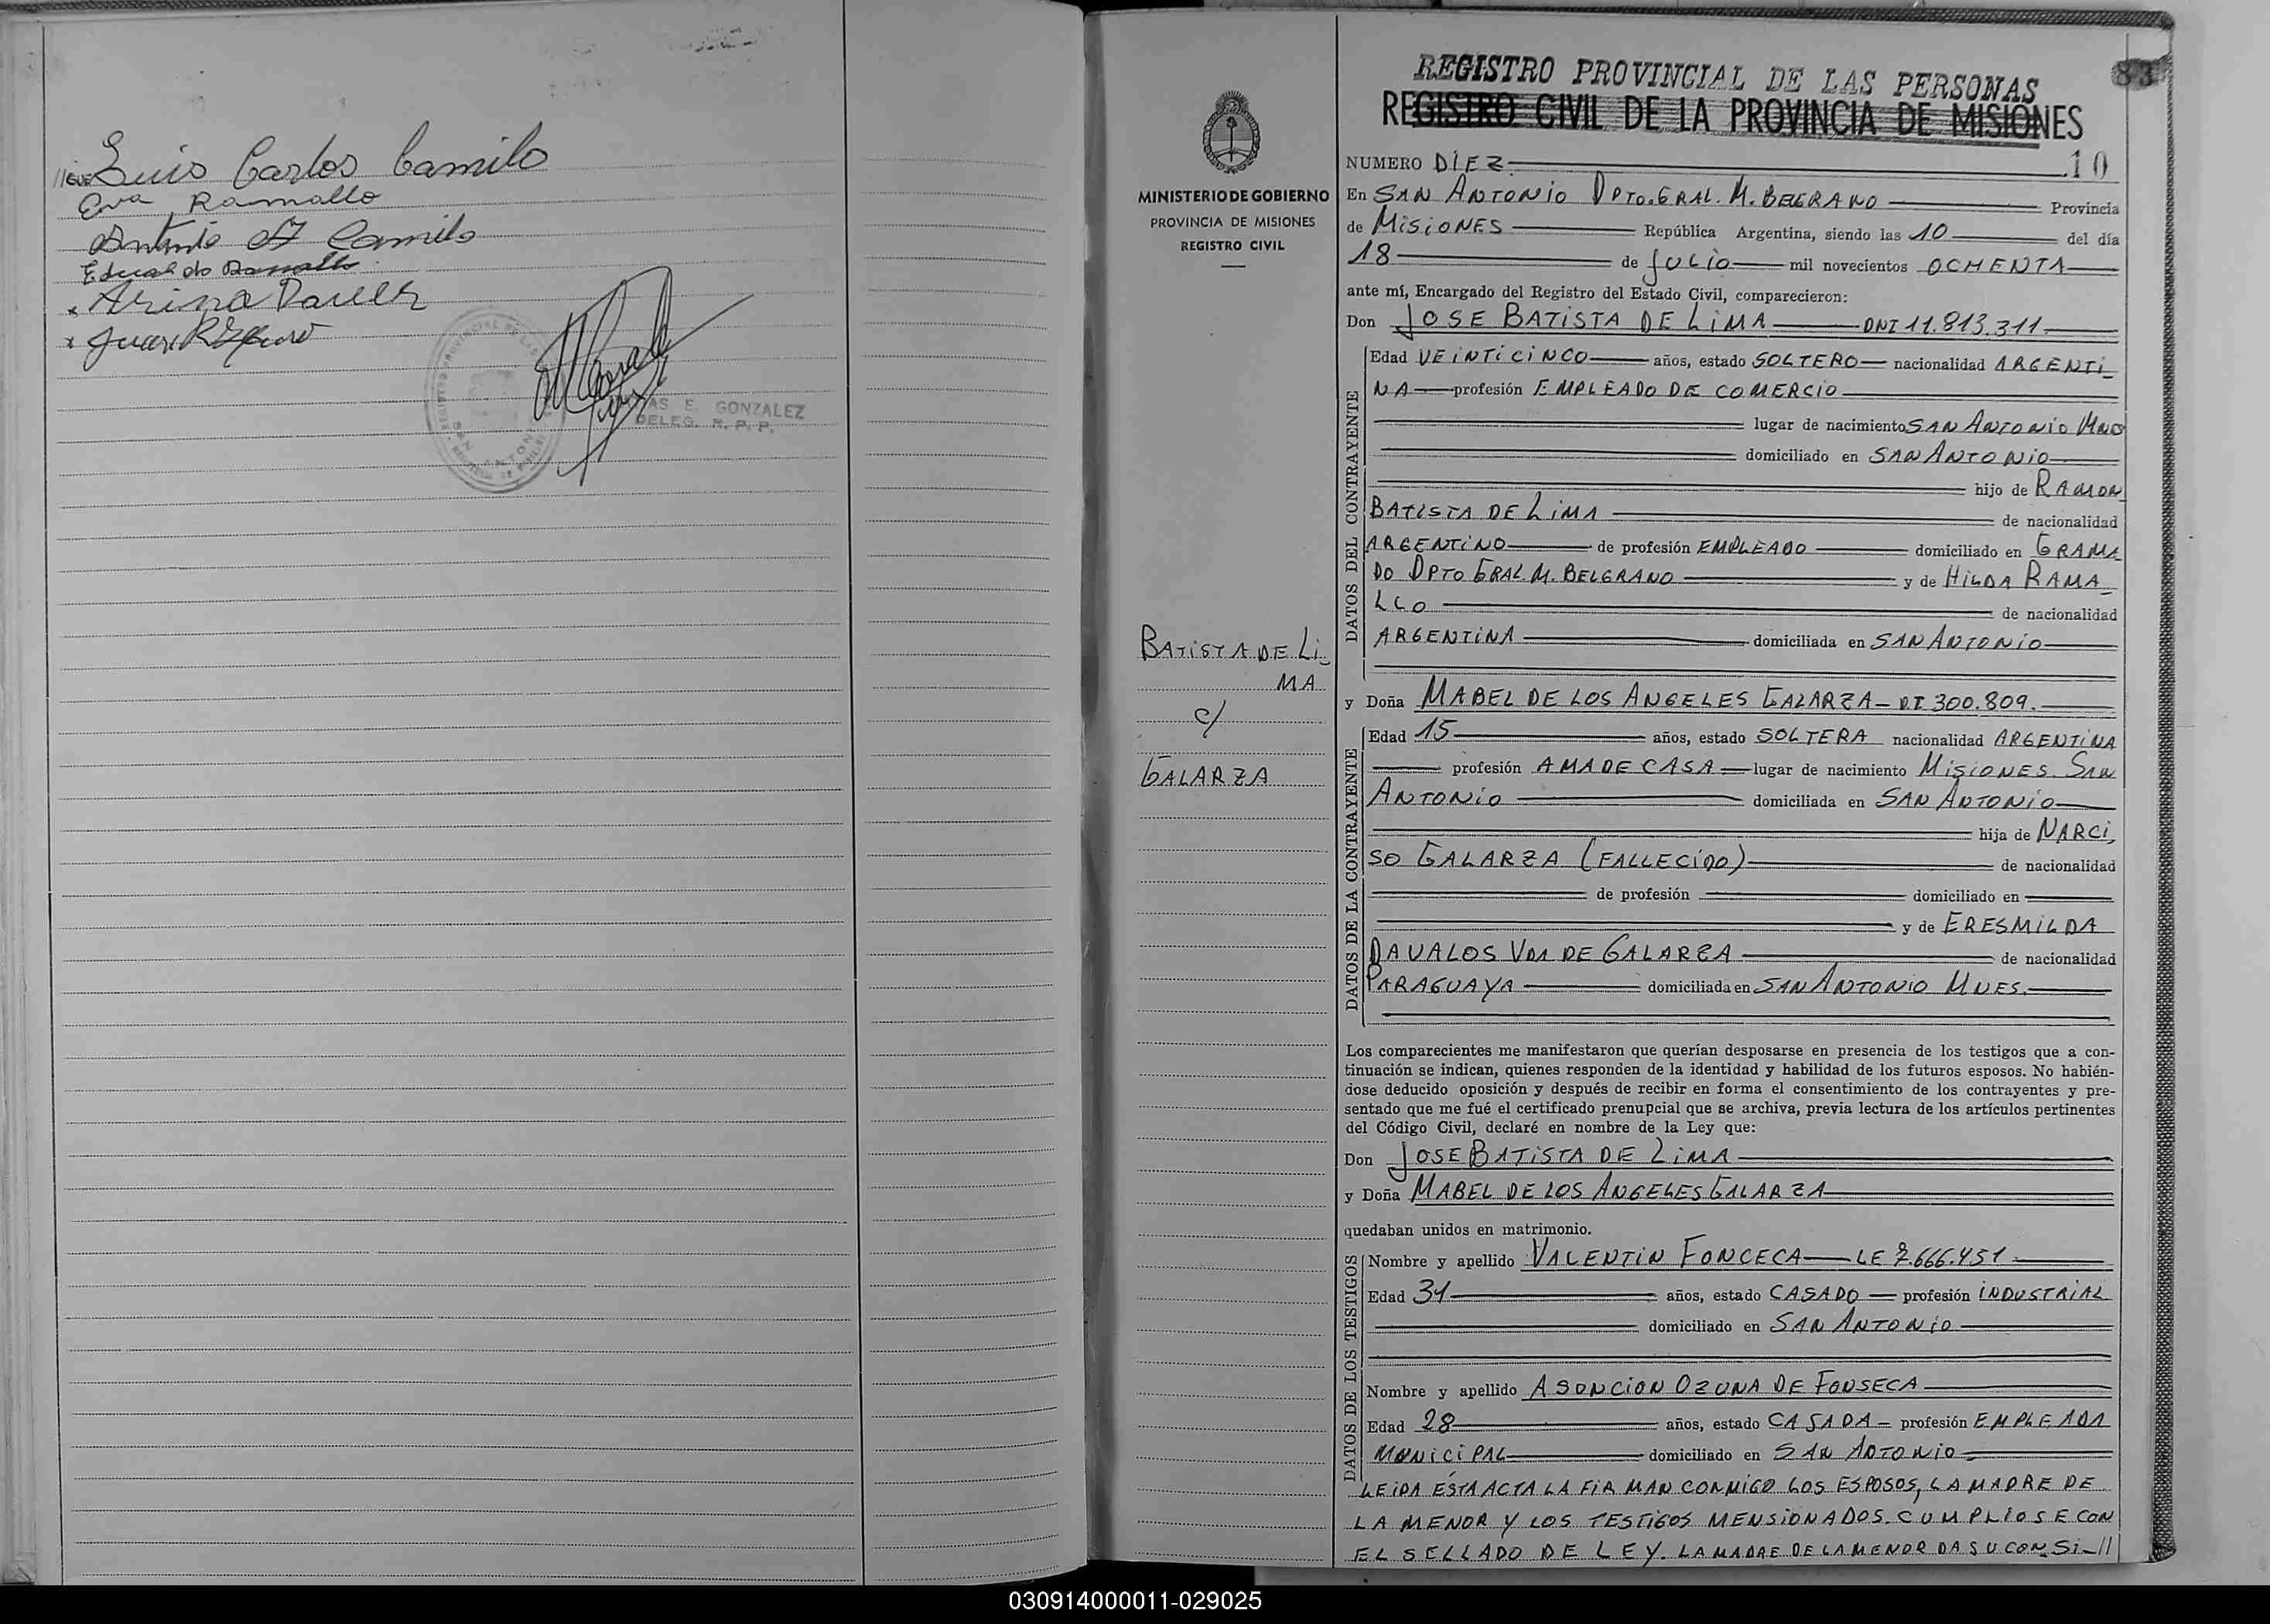 Luis Carlos Camilo
Eva Ramallo
Antonio A Camilo
Eduardo Ramallo
GONZALEZ
DELEG. R. P. P.
MINISTERIO DE GOBIERNO
PROVINCIA DE MISIONES
REGISTRO CIVIL
BATISTA DE LI_
MA
c/
GALARZA
83
REGISTRO PROVINCIAL DE LAS PERSONAS
REGISTRO CIVIL DE LA PROVINCIA DE MISIONES
NUMERO DIEZ 10
En SAN ANTONIO DPTO. GRAL. M. BELGRANO Provincia
de MISIONES República Argentina, siendo las 10 del día
18 de JULIO mil novecientos OCHENTA
ante mí, Encargado del Registro del Estado Civil, comparecieron:
Don JOSE BATISTA DE LIMA DNI 11.813.311.
DATOS DEL CONTRAYENTE
Edad VEINTICINCO años, estado SOLTERO nacionalidad ARGENTI_
NA profesión EMPLEADO DE COMERCIO
lugar de nacimiento SAN ANTONIO
domiciliado en SAN ANTONIO
hijo de RAMON
BATISTA DE LIMA de nacionalidad
ARGENTINO de profesión EMPLEADO domiciliado en GRAMA
DO DPTO GRAL. M. BELGRANO y de HILDA RAMA_
LLO de nacionalidad
ARGENTINA domiciliada en SAN ANTONIO
y Doña MABEL DE LOS ANGELES GALARZA - D.I. 300.809.
DATOS DE LA CONTRAYENTE
Edad 15 años, estado SOLTERA nacionalidad ARGENTINA
profesión AMA DE CASA lugar de nacimiento MISIONES. SAN
ANTONIO domiciliada en SAN ANTONIO
hija de NARCI_
SO GALARZA (FALLECIDO) de nacionalidad
de profesión domiciliado en
y de ERESMILDA
DAVALOS VDA DE GALARZA de nacionalidad
PARAGUAYA domiciliada en SAN ANTONIO MNES.
Los comparecientes me manifestaron que querían desposarse en presencia de los testigos que a con-
tinuación se indican, quienes responden de la identidad y habilidad de los futuros esposos. No habién-
dose deducido oposición y después de recibir en forma el consentimiento de los contrayentes y pre-
sentado que me fué el certificado prenupcial que se archiva, previa lectura de los artículos pertinentes
del Código Civil, declaré en nombre de la Ley que:
Don JOSE BATISTA DE LIMA
y Doña MABEL DE LOS ANGELES GALARZA
quedaban unidos en matrimonio.
DATOS DE LOS TESTIGOS
Nombre y apellido VALENTIN FONCECA LE 7.666.451
Edad 31 años, estado CASADO profesión INDUSTRIAL
domiciliado en SAN ANTONIO
Nombre y apellido ASONCION OZUNA DE FONSECA
Edad 28 años, estado CASADA - profesión EMPLEADA
MUNICIPAL domiciliado en SAN ANTONIO
LEIDA ÉSTA ACTA LA FIRMAN CONMIGO LOS ESPOSOS, LA MADRE DE
LA MENOR Y LOS TESTIGOS MENSIONADOS. CUMPLIOSE CON
EL SELLADO DE LEY. LA MADRE DE LA MENOR DA SU CONSI_//
030914000011-029025